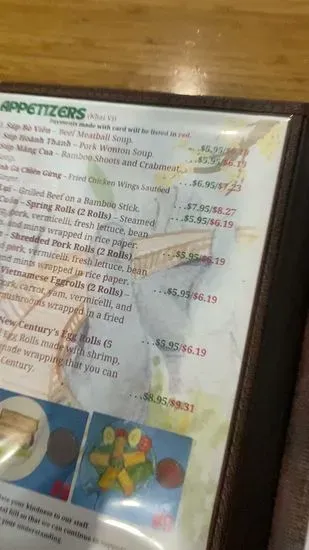 APPETIZERS (Khai Vị)
Payments made with card will be listed in red.
Súp Bò Viên – Beef Meatball Soup. ...$5.95/$6.19
Súp Hoành Thánh – Pork Wonton Soup ...$5.95/$6.19
Súp Măng Cua – Bamboo Shoots and Crabmeat
Soup. ...$6.95/$7.23
Gà Chiên Gừng – Fried Chicken Wings Sautéed
...$7.95/$8.27
Lụi – Grilled Beef on a Bamboo Stick. ...$5.95/$6.19
Cuốn – Spring Rolls (2 Rolls) – Steamed
pork, vermicelli, fresh lettuce, bean
and mints wrapped in rice paper. ...$5.95/$6.19
– Shredded Pork Rolls (2 Rolls) –
pork, vermicelli, fresh lettuce, bean
and mints wrapped in rice paper. ...$5.95/$6.19
Vietnamese Eggrolls (2 Rolls) –
pork, carrot, yam, vermicelli, and
mushrooms wrapped in a fried
...$5.95/$6.19
New Century's Egg Rolls (5
Egg Rolls made with shrimp,
made wrapping that you can
Century. ...$8.95/$9.31
your kindness to our staff
total bill so that we can continue to
your understanding.